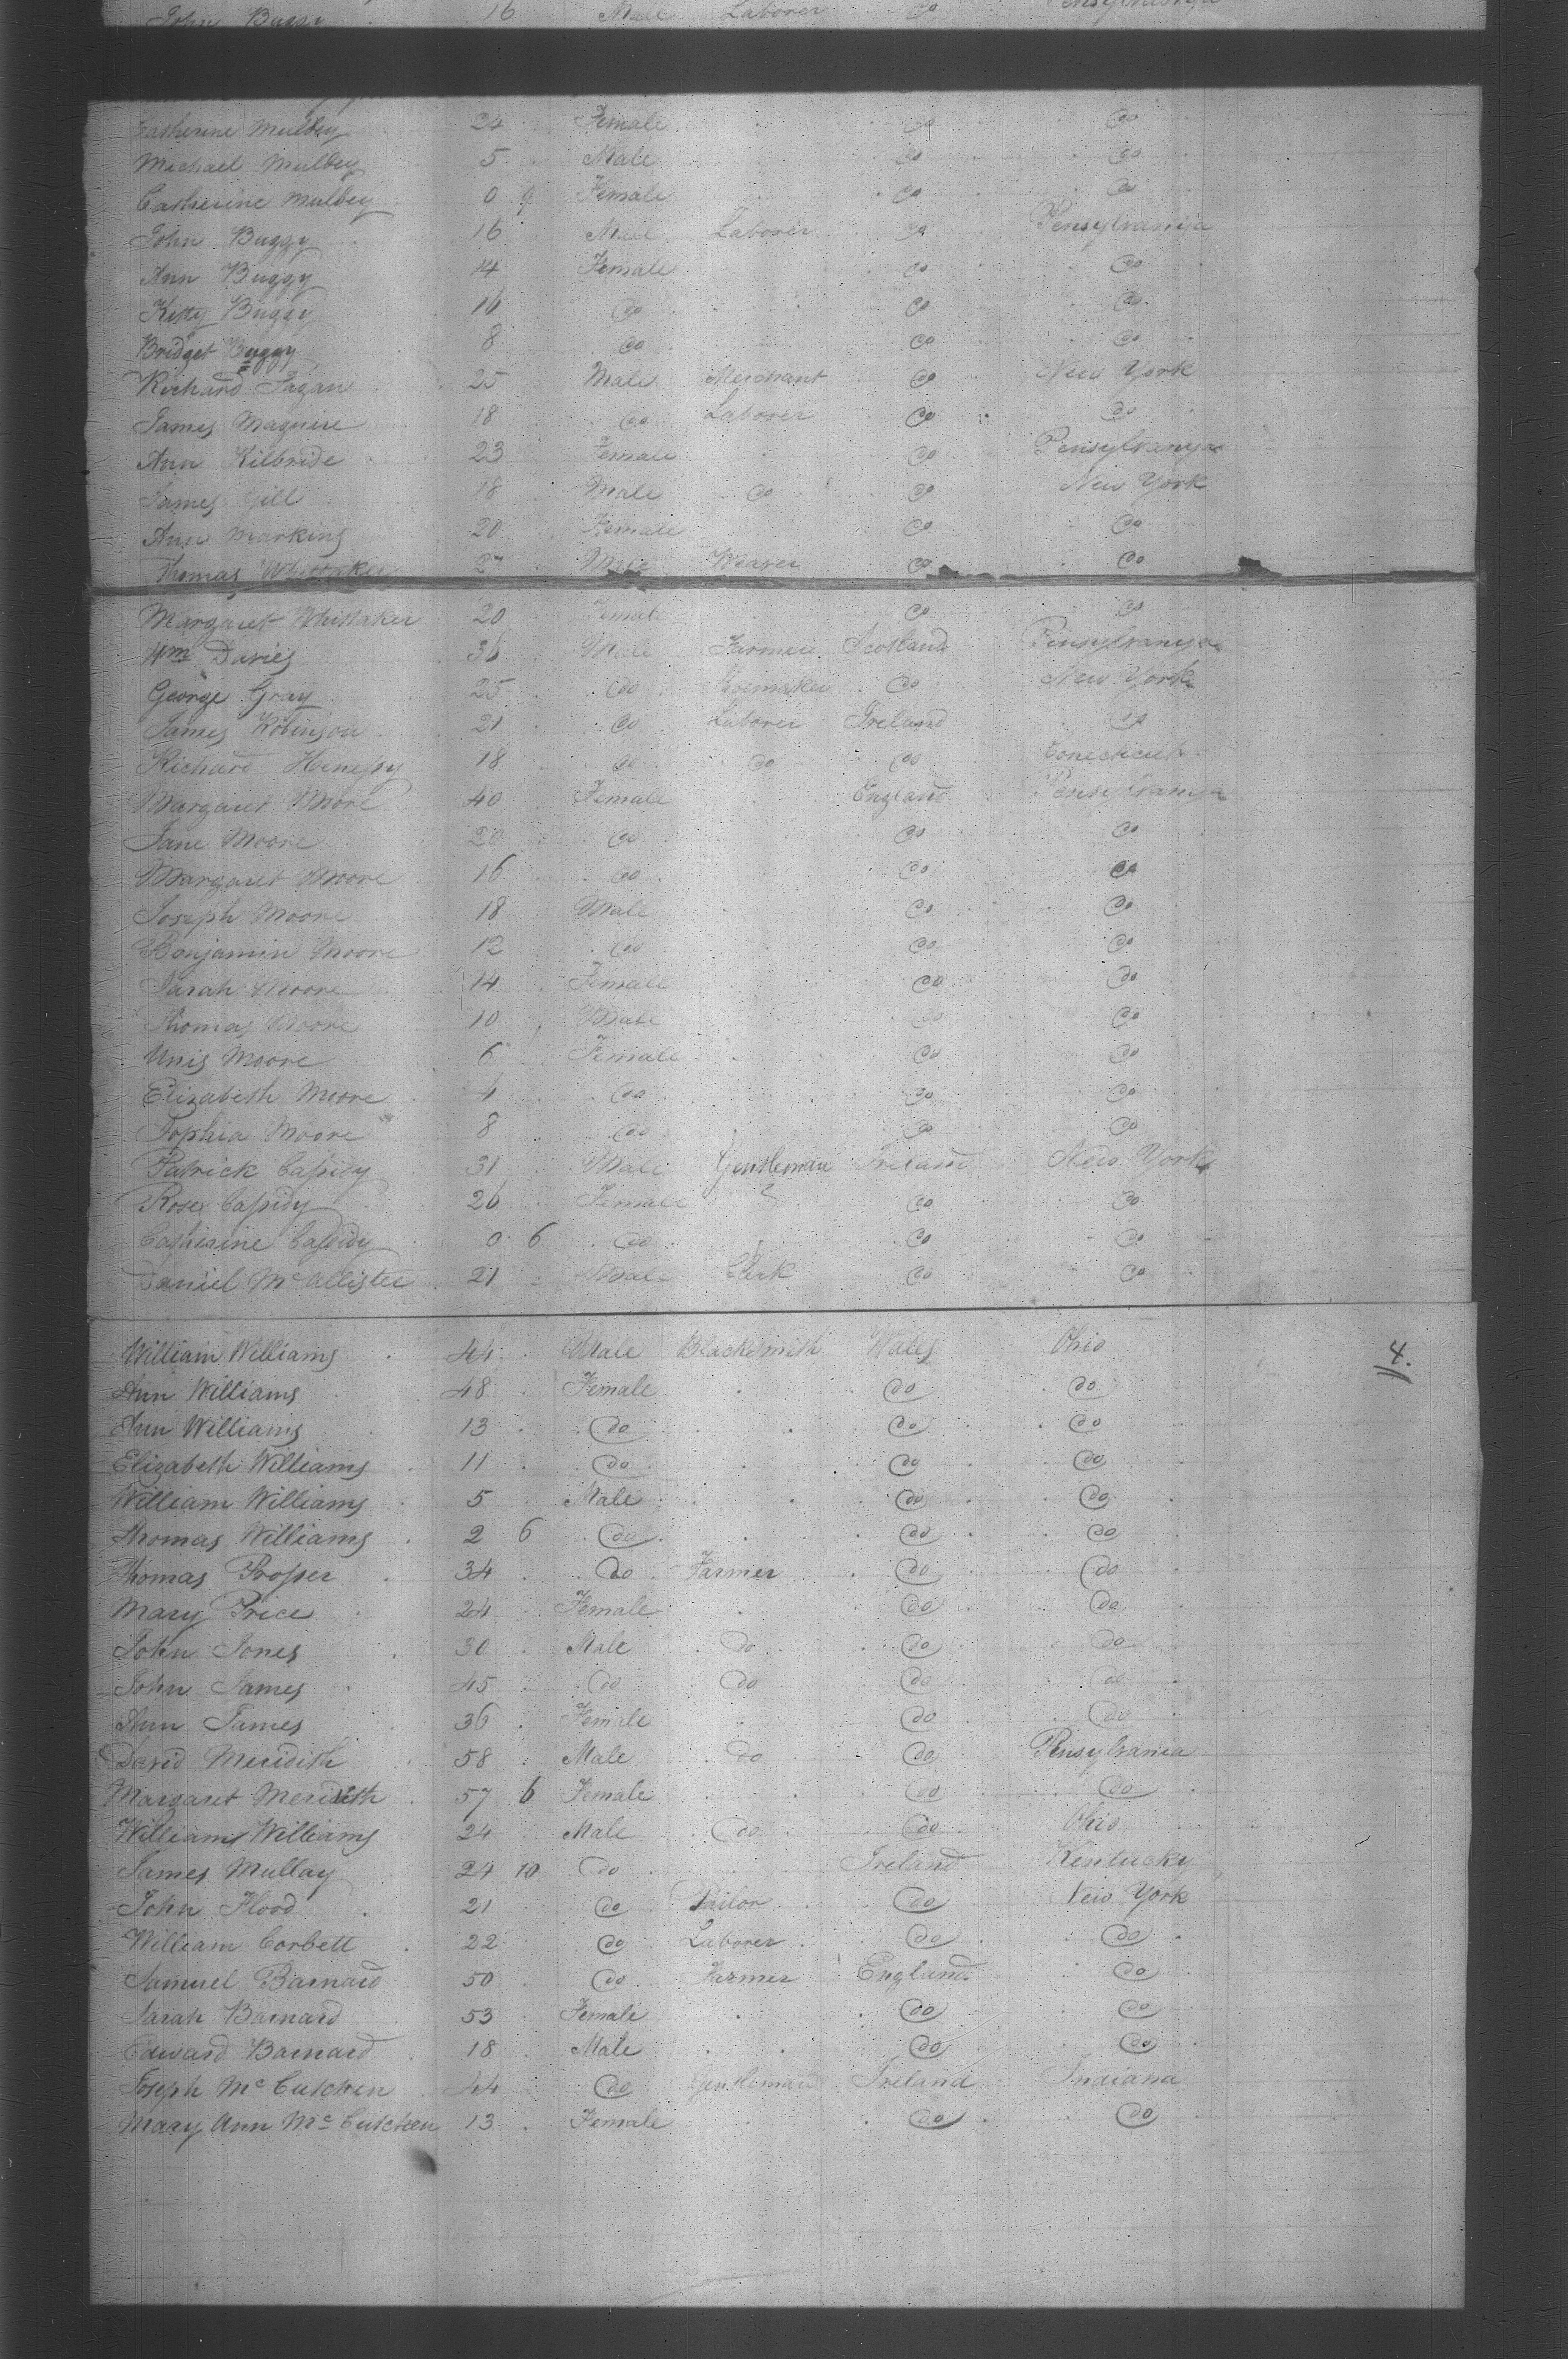 John Buggy 16 Male Laborer Do Pensylvanija
Catherine Mulbey 24 Female Do Do
Michael Mulbey 5 Male Do Do
Catherine Mulbey 0 9 Female Do Do
John Buggy 16 Male Laborer Do Pensylvanija
Ann Buggy 14 Female Do Do
Kitty Buggy 16 Do Do Do
Bridget Buggy 8 Do Do Do
Richard Fagan 25 Male Merchant Do New York
James Maguire 18 Do Laborer Do Do
Ann Kilbride 23 Female Do Pensylvanija
James Gill 18 Male Do Do New York
Ann Markins 20 Female Do Do
Thomas Whittaker 27 Male Weaver Do Do
Margaret Whittaker 20 Female Do Do
Wm Davies 36 Male Farmer Scotland Pensylvanija
George Gray 25 Do Do New York
James Robinson 21 Do Laborer Ireland Do
Richard Henessy 18 Do Do Do Conecticut
Margaret Moore 40 Female England Pensylvanija
Jane Moore 20 Do Do Do
Margaret Moore 16 Do Do Do
Joseph Moore 18 Male Do Do
Benjamin Moore 12 Do Do Do
Sarah Moore 14 Female Do Do
Thomas Moore 10 Male Do Do
Unis Moore 6 Female Do Do
Elizabeth Moore 4 Do Do Do
Sophia Moore 8 Do Do Do
Patrick Cassidy 31 Male Gentleman Ireland New York
Rose Cassidy 26 Female Do Do
Catherine Cassidy 0 6 Do Do Do
Daniel McAllister 21 Male Clerk Do Do
William Williams 44 Male Blacksmith Wales Ohio 4.
Ann Williams 48 Female Do Do
Ann Williams 13 Do Do Do
Elizabeth Williams 11 Do Do Do
William Williams 5 Male Do Do
Thomas Williams 2 6 Do Do Do
Thomas Prosser 34 Do Farmer Do Do
Mary Price 24 Female Do Do
John Jones 30 Male Do Do Do
John James 45 Do Do Do Do
Ann James 36 Female Do Do
David Meridith 58 Male Do Do Pensylvania
Margaret Meridith 57 6 Female Do Do
William Williams 24 Male Do Do Ohio
James Mullay 24 10 Do Ireland Kentucky
John Flood 21 Do Tailor Do New York
William Corbett 22 Do Laborer Do Do
Samuel Barnard 50 Do Farmer England Do
Sarah Barnard 53 Female Do Do
Edward Barnard 18 Male Do Do
Joseph McCutchen 44 Do Gentleman Ireland Indiana
Mary Ann McCutcheen 13 Female Do Do